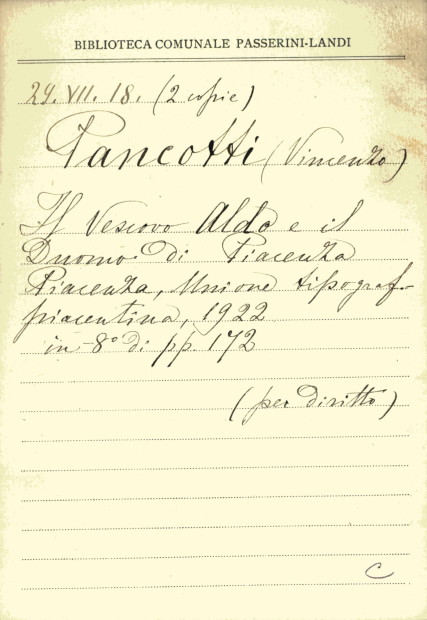 BIBLIOTECA COMUNALE PASSERINI-LANDI
24. VII. 18. (2 copie)
Pancotti (Vincenzo)
Il Vescovo Aldo e il
Duomo di Piacenza
Piacenza, Unione tipograf-
piacentina, 1922
in-8° di pp. 172
(per diritto)
C